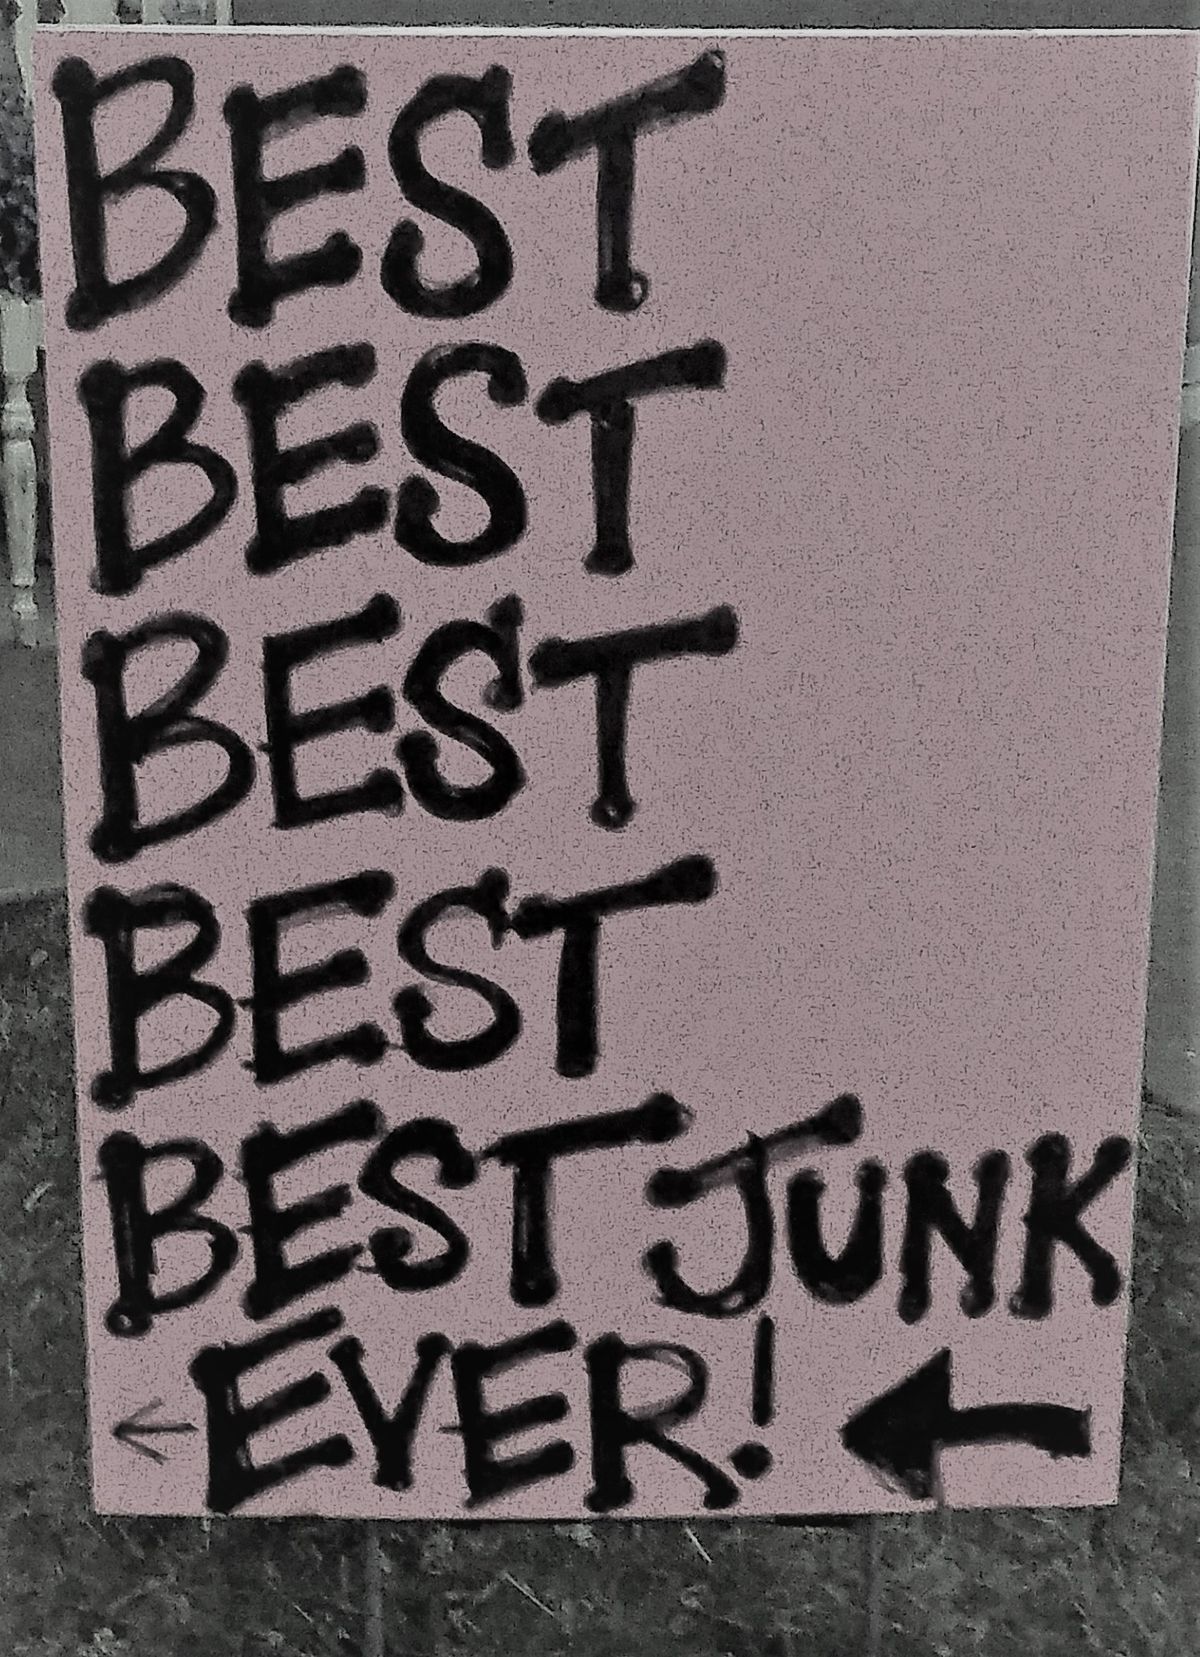 BEST
BEST
BEST
BEST
BEST JUNK
EVER!